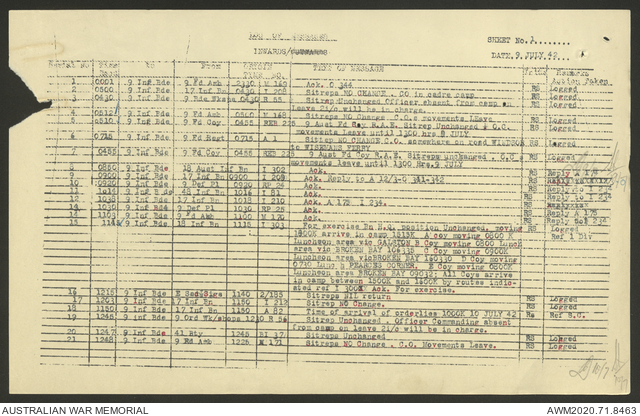 LOG OF MESSAGES
SHEET No. 1
INWARDS/OUTWARDS
DATE 9 JULY 42
Serial No TIME DATE To From ORIGIN TIME NO. TEXT OF MESSAGE Prior Remarks Action Taken
1 0001 9 Inf Bde 9 Fd Amb 2130 M 160 Ack. O 344 Logged
2 0500 9 Inf Bde 17 Inf Bn 0430 I 208 Sitreps NO CHANGE. CO in cadre camp RS Logged
3 0430 9 Inf Bde 9 Bde Wksps 0430 B 55 Sitrep Unchanged Officer absent from camp on RS Logged
leave 21/o will be in charge.
4 0512 9 Inf Bde 9 Fd Amb 0455 M 168 Sitreps NO Change C.O.s movements Leave RS Logged
5 0510 9 Inf Bde 9 Fd Coy RER 225 9 Aust Fd Coy R.A.E. Sitrep Unchanged & O.C. RS Logged
movements Leave until 1300 hrs 9 JULY.
6 0715 9 Inf Bde 9 Fd Regt 0715 A 1 Sitrep NO CHANGE C.O. somewhere on road WINDSOR
to WISEMANS FERRY RS Logged
7 0455 9 Inf Bde 9 Fd Coy RER 225 9 Aust Fd Coy R.A.E. Sitreps unchanged . O.C.s
movements leave until 1300 Hrs 9 JULY RS Logged
8 0850 9 Inf Bde 18 Aust Inf Bn I 302 Ack.
9 0900 9 Inf Bde 17 Inf Bn 0900 I 209 Ack. Reply to A 12/3-0 341-342 RS Reply A 175
10 0920 9 Inf Bde 9 Def Pl 0920 RP 26 Ack.
11 1018 9 Inf Bde 45 Inf Bn 1016 I 81 Ack. RS
12 1038 9 Inf Bde 17 Inf Bn 1018 I 210 Ack. A 175 I 234. RS Reply to I 234
13 1035 9 Inf Bde 9 Def Pl 1030 RP 28 Ack. RS Reply A 175
14 1103 9 Inf Bde 9 Fd Amb 1100 M 170 Ack. RS Reply to I 234
15 1145 9 Inf Bde 18 Inf Bn 1115 I 303 For exercise Bn H.Q. position Unchanged, moving RS Logged
1800K arrive in camp 1815K A coy moving 0800 K Ref 1 Div
Luncheon area vic GALSTON B Coy moving 0800 Lunch
area vic BROKEN BAY 104335 C Coy moving 0900K
Luncheon area vicBROKEN BAY 150330 D Coy moving
0730 Lunch PEARCES CORNER. E Coy moving 0800K
Luncheon area BROKEN BAY 09032; All Coys arrive
in camp between 1500K and 1600K by routes indic-
ated ref I 100K Ack. For exercise.
16 1215 9 Inf Bde E Sec Sigs 1140 2/185 Sitreps NIL return RS Logged
17 1203 9 Inf Bde 17 Inf Bn 1150 I 212 Sitrep NO Change. RS Logged
18 1150 9 Inf Bde 17 Inf Bn A 82 Time of arrival of orderlies 1000K 10 JULY 42 RS Ref S.C.
19 1245 9 Inf Bde 9 Ord Wkshops 1210 B 56 Sitrep Unchanged . Officer Commanding absent
from camp on leave 21/o will be in charge. RS Logged
20 1247 9 Inf Bde 41 Bty 1245 BI 37 Sitreps Unchanged RS Logged
21 1248 9 Inf Bde 9 Fd Amb 1225 M 171 Sitreps NO Change . C.O. Movements Leave. RS Logged
AUSTRALIAN WAR MEMORIAL
AWM2020.71.8463